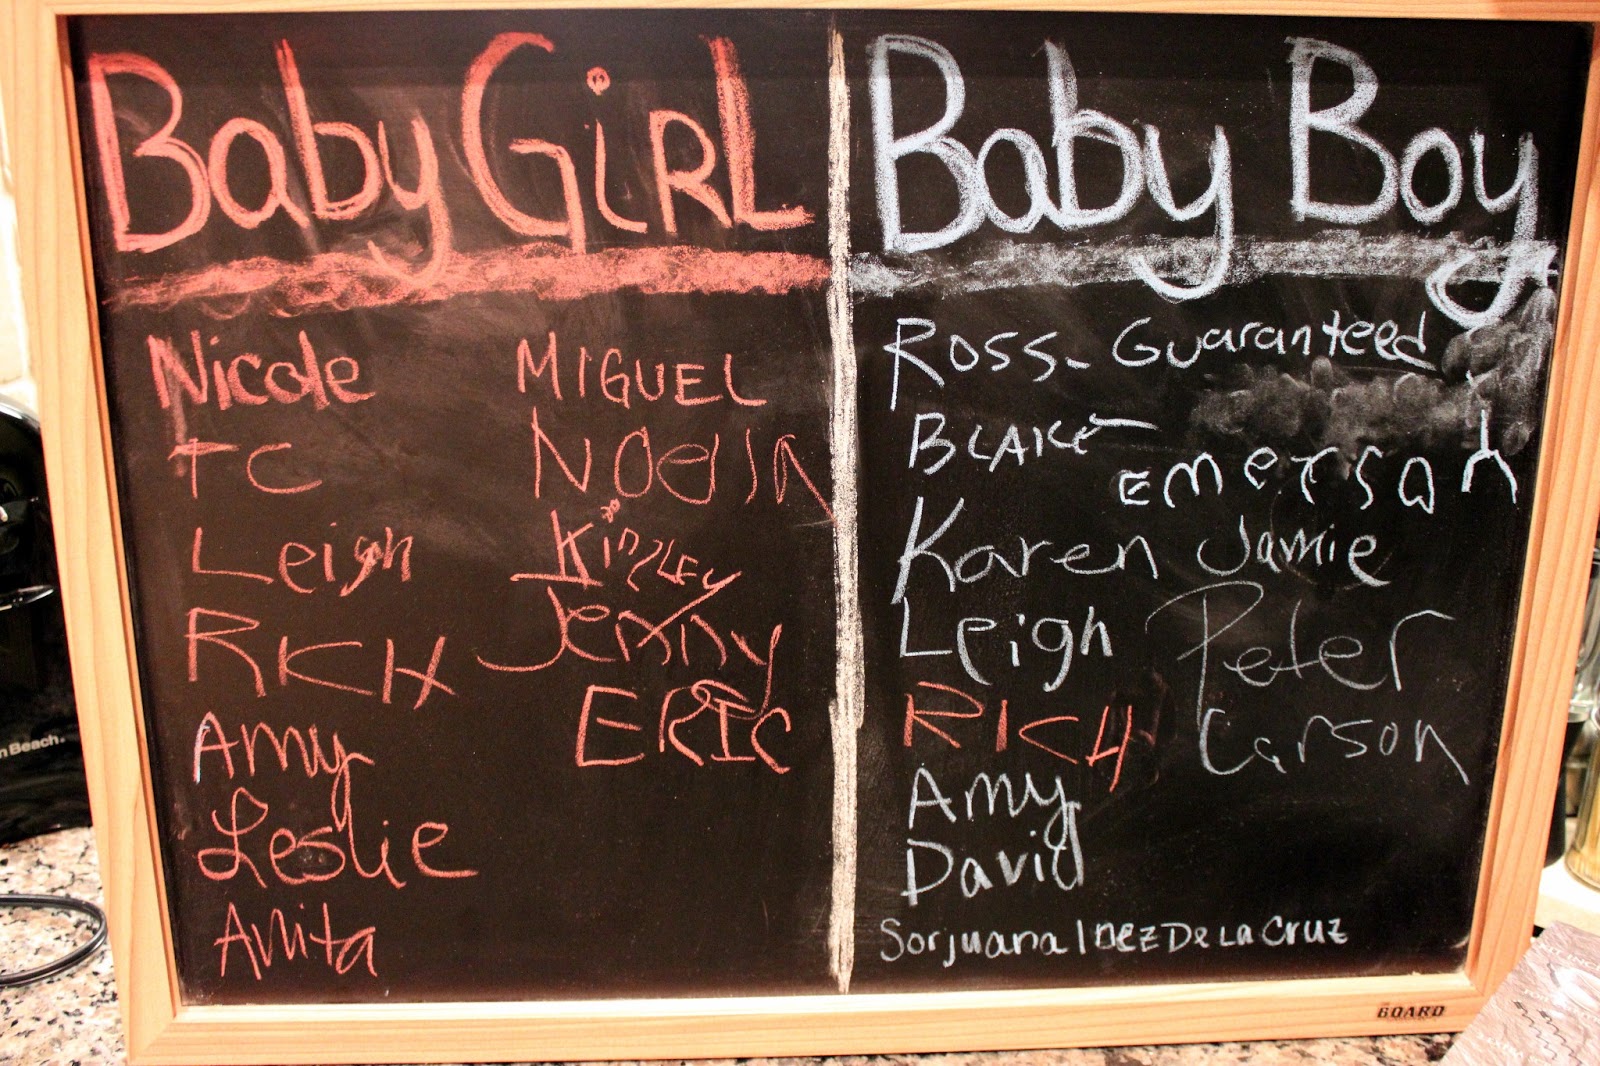 Baby GirL
Nicole
TC
Leigh
RICH
Amy
Leslie
Anita
MIGUEL
NadiA
KinzLEy
Jenny
ERIC
Baby Boy
Ross- Guaranteed
BLAKE
Emerson
Karen
Jamie
Leigh
Peter
RICH
Carson
Amy
David
Sorjuana Inez De La Cruz
BOARD
n Beach.